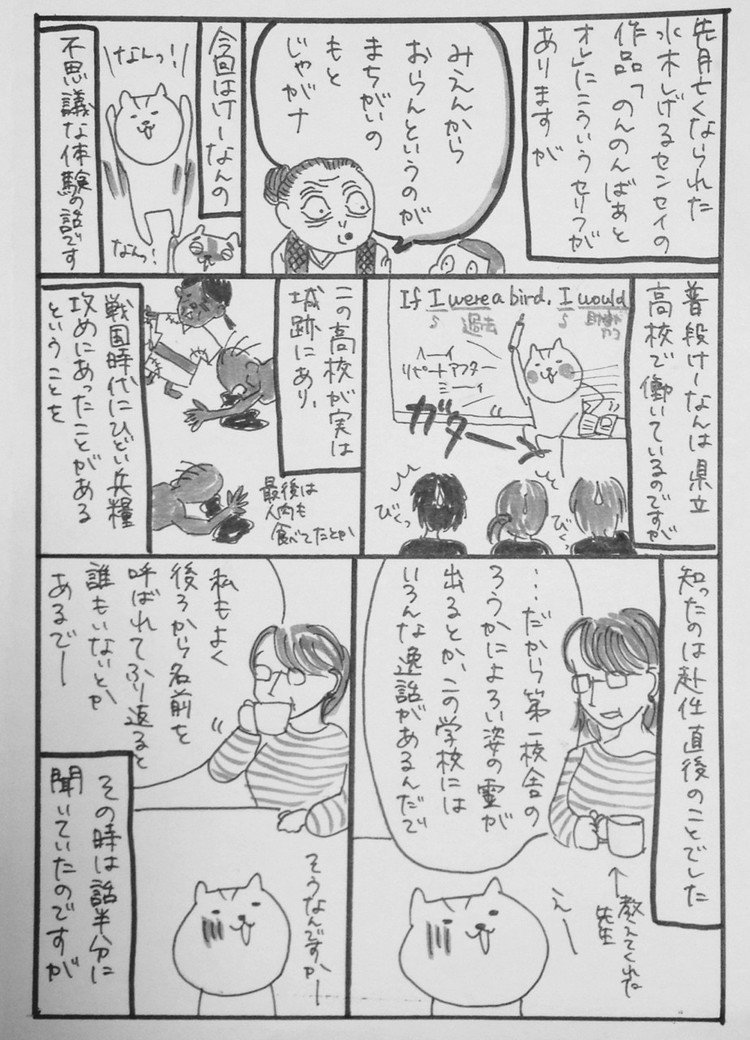 先月亡くなられた
水木しげるセンセイの
作品「のんのんばあと
オレ」にこういうセリフが
ありますが
みえんから
おらんというのが
まちがいの
もと
じゃがナ
今回はけーなんの
不思議な体験の話です
なんっ!
なんっ!
普段けーなんは県立
高校で働いているのですが
If I were a bird, I would
S 過去 S
ヘーイ
リピートアフター
ミーイ
ガターン
びくっ
びくっ
この高校が実は
城跡にあり、
戦国時代にひどい兵糧
攻めにあったことがある
ということを
最後は
人肉も
食べてたとか
知ったのは赴任直後のことでした
…だから第一校舎の
ろうかによろい姿の霊が
出るとか、この学校には
いろんな逸話があるんだで
↑教えてくれた
先生
えー
私もよく
後ろから名前を
呼ばれてふり返ると
誰もいないとか
あるでー
そうなんですかー
その時は話半分に
聞いていたのですが